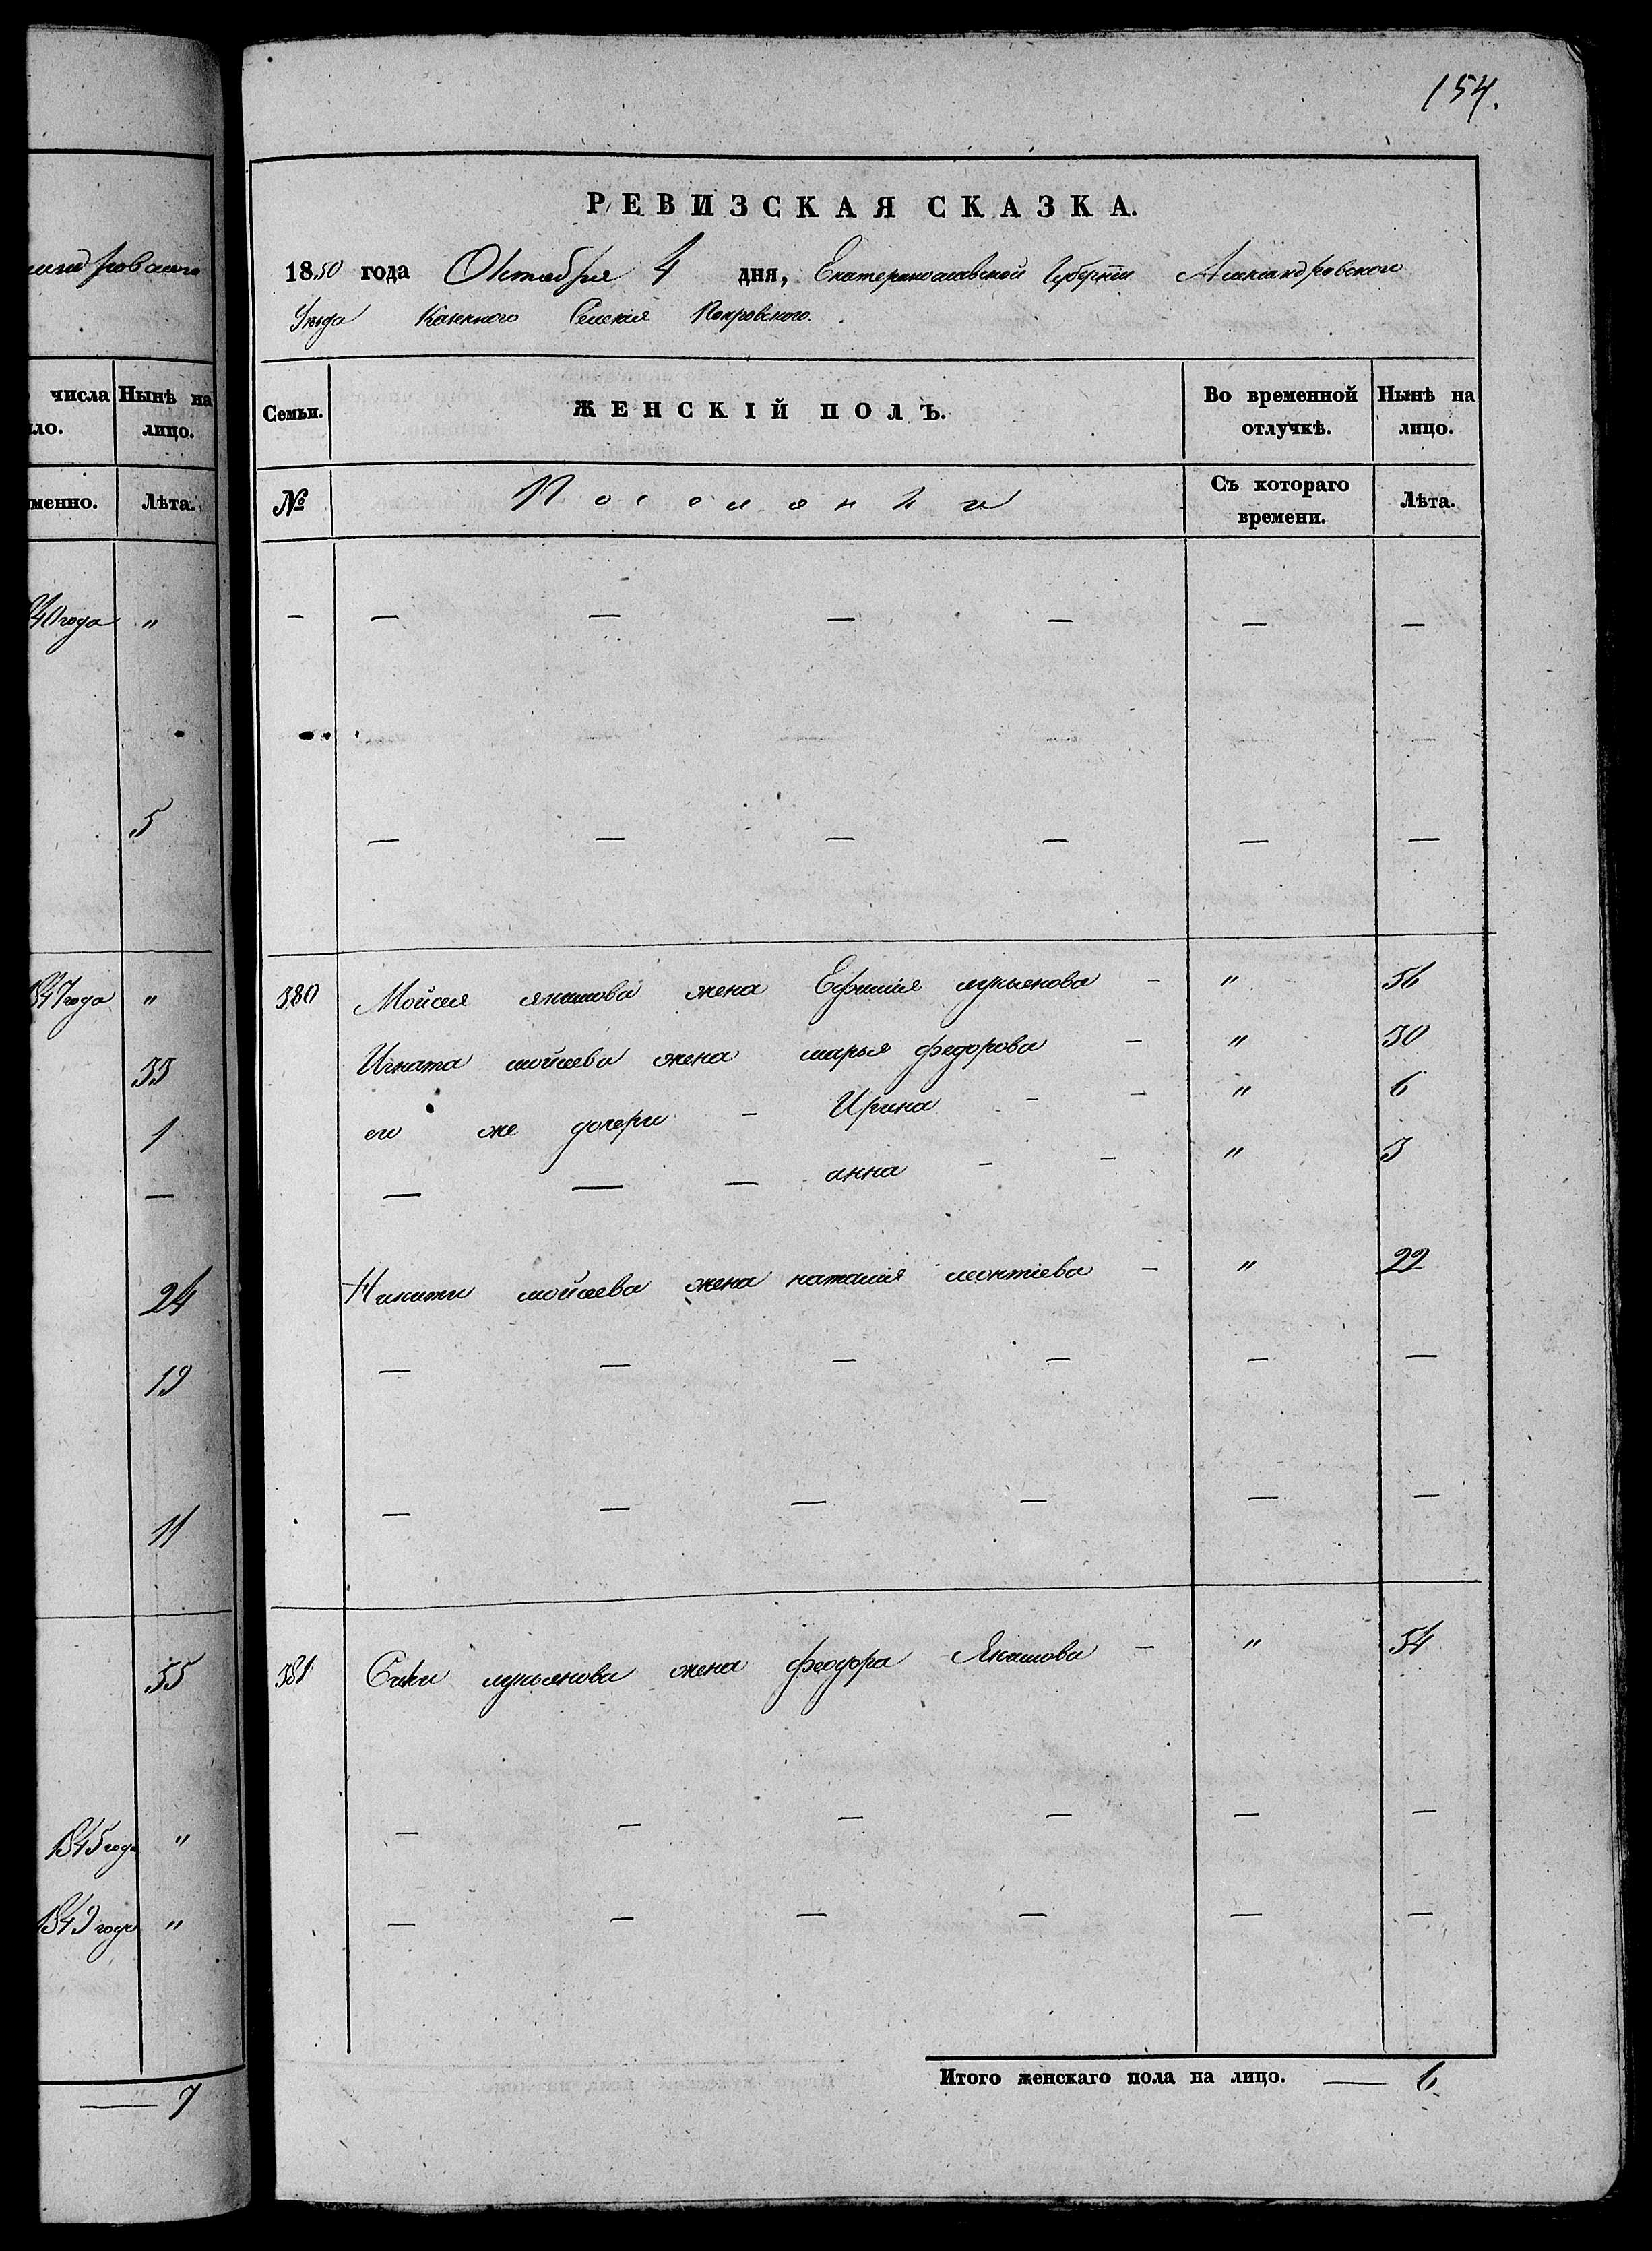 154.
РЕВИЗСКАЯ СКАЗКА.
1850 года Октября 4 дня, Екатеринославской Губернiи Александровского
Уезда Казенного Селенiя Покровского.
Семьи. ЖЕНСКІЙ ПОЛЪ. Во временной отлучкѣ. Нынѣ на лицо.
№ Поселянки Съ котораго времени. Лѣта.
— — — — — — —
— — — — — —
— — — — — —
380 Мойсея якимова жена Ефимiя лукьянова - " 56
Игната мойсеева жена марья федорова - " 30
его же дочери - Ирина - - " 6
— — — анна - - " 3
Никиты мойсеева жена наталiя леонтiева - " 22
— — — — — —
— — — — — —
381 лукьянова жена феодора Якимова - " 54
— — — — — —
— — — — — —
Итого женскаго пола на лицо. — 6
числа Нынѣ на
ло. лицо.
менно. Лѣта.
40 года "
5
1847 года "
33
1
—
24
19
11
55
1845 года "
1849 года "
— 7